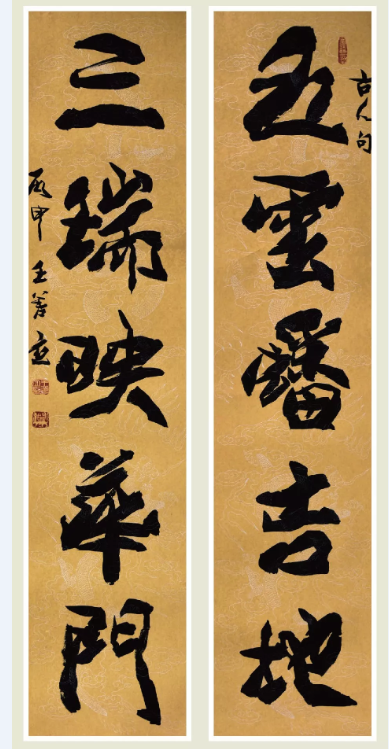 古人句
五雲蟠吉地
三瑞映華門
丙申